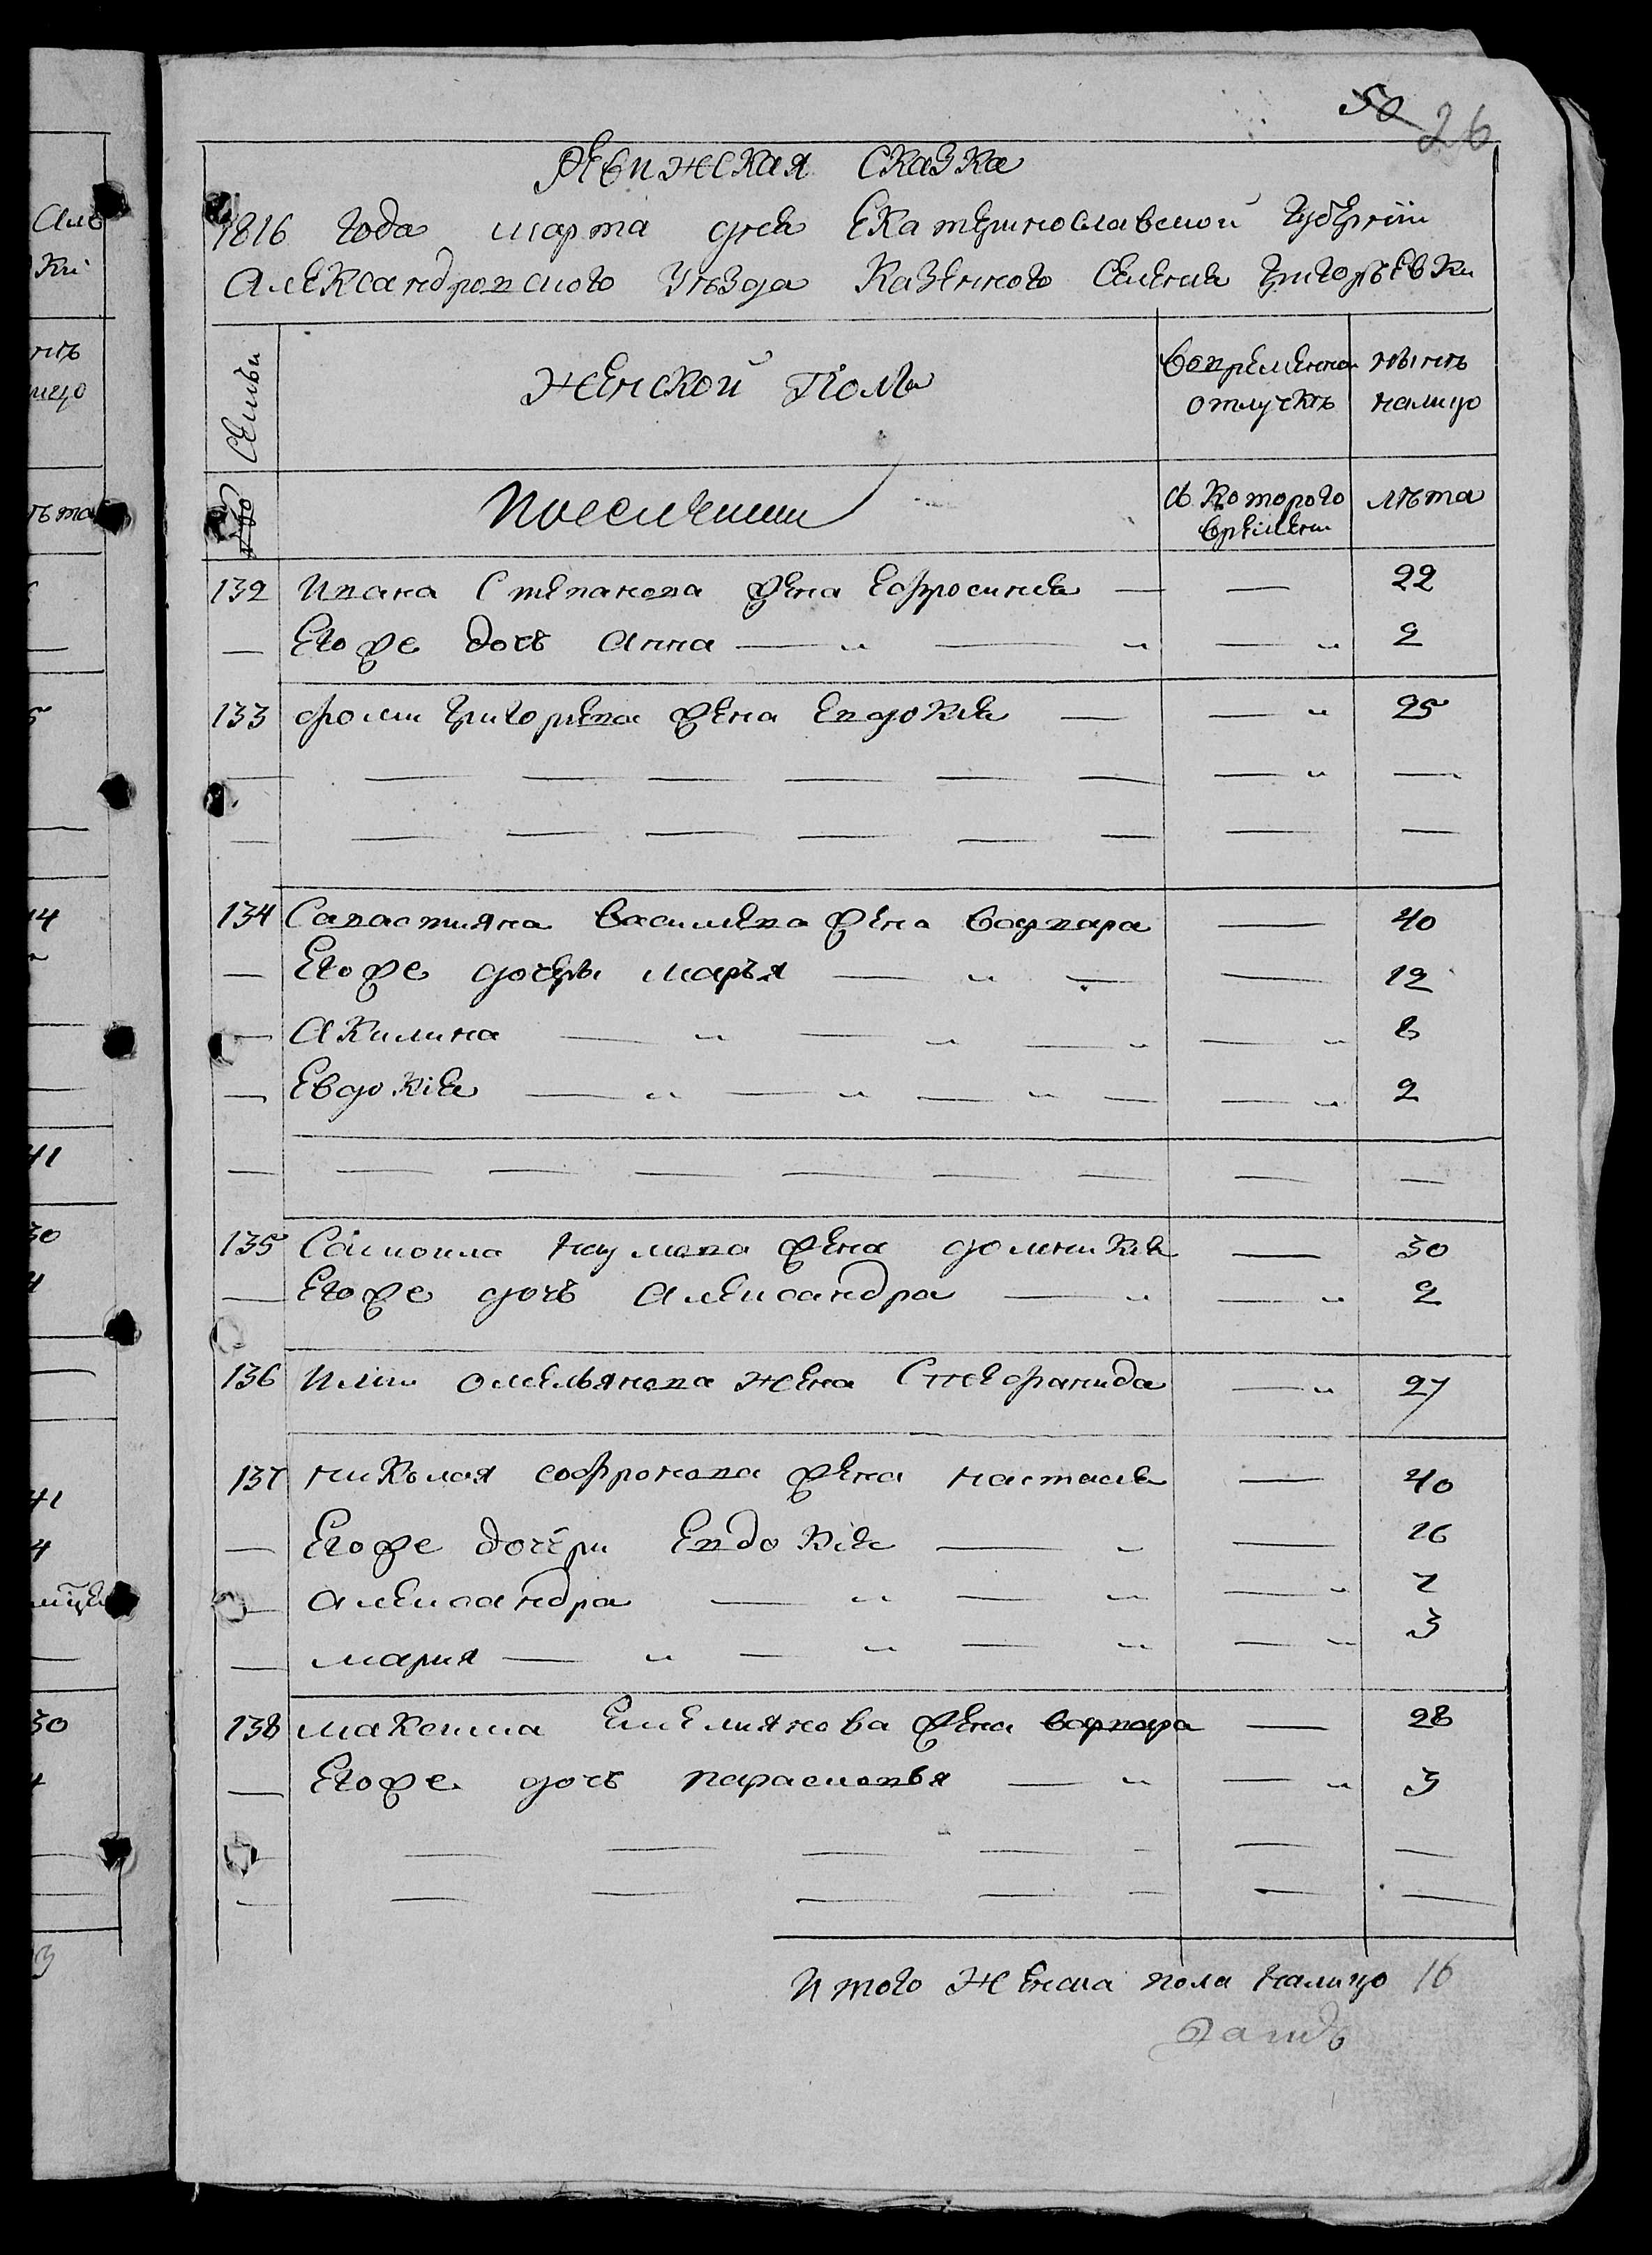 50 26
Ревижская сказка
1816 года марта дня Екатеринославской Губернїи
Александровского Уѣзда Казенного Селения Григорьевки
Семьи
Женской Полъ
Вовременно отлучкѣ
нынѣ налицо
№
съ которого времени
лѣта
132 Ивана Степанова жена Ефросиния — — 22
— Егоже дочь Анна — — 2
133 Фоми Григориева жена Евдокия — — 25
134 Савастияна Василева жена Варвара — 40
— Егоже дочери Марья — — 12
— Акилина — — 8
— Евдокїя — — 2
135 Самоила Наумова жена Домникия — 30
— Егоже дочь Александра — — 2
136 Илии Омельянова жена Стефанида — 27
137 Николая Софронова жена Настасия — 40
— Егоже дочери Евдокїя — — 16
— Александра — — 7
— Мария — — 3
138 Максима Емелиянова жена Варвара — 28
— Егоже дочь Парасковья — — 3
Итого Женска пола налицо 16